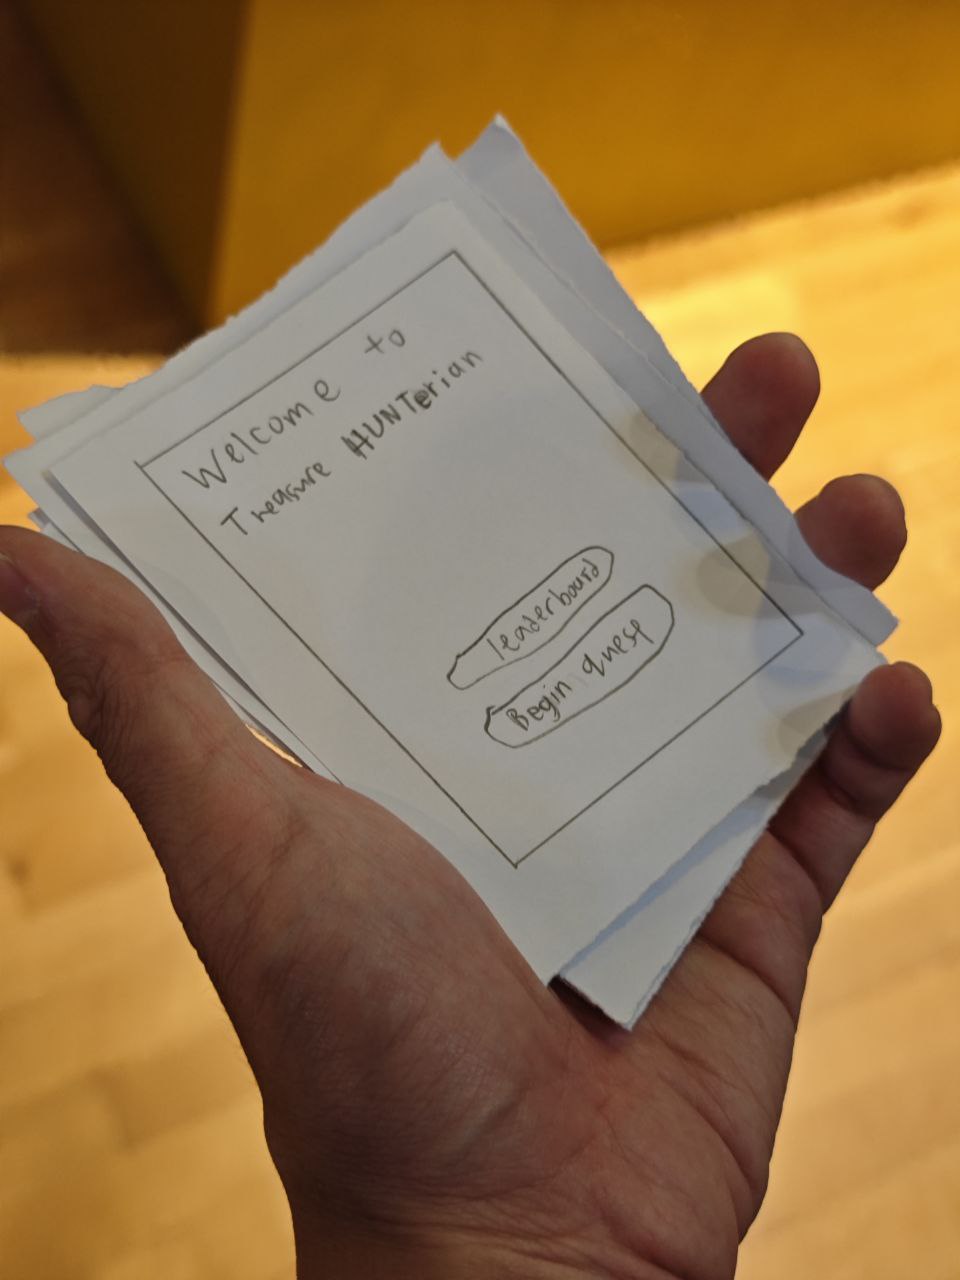 Welcome to
Treasure HUNTerian
leaderboard
Begin quest